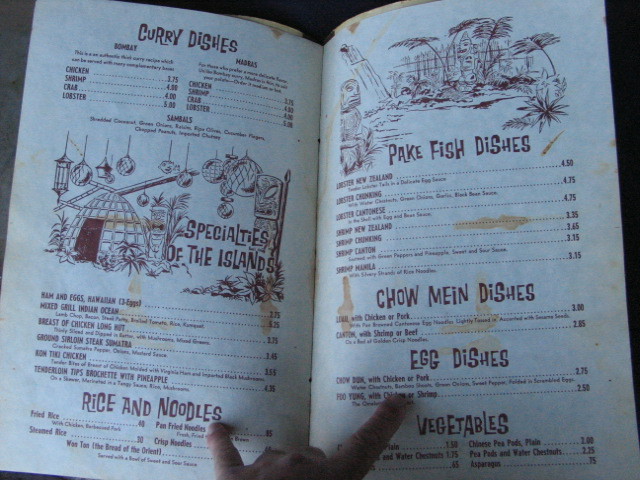 CURRY DISHES
BOMBAY
This is a an authentic thick curry recipe which
can be served with many complementary bases
CHICKEN
SHRIMP 3.75
CRAB 4.00
LOBSTER 4.00
5.00
MADRAS
For those who prefer a more delicate flavor.
CHICKEN
SHRIMP 3.75
CRAB 4.00
LOBSTER 4.00
5.00
SAMBALS
Shredded Coconut, Green Onions, Raisins, Ripe Olives, Cucumber Fingers,
Chopped Peanuts, Imported Chutney
SPECIALTIES
OF THE ISLANDS
HAM AND EGGS, HAWAIIAN (3-Eggs)
MIXED GRILL INDIAN OCEAN
Lamb Chop, Bacon, Steak Patty, Broiled Tomato, Rice, Kumquat
BREAST OF CHICKEN LONG HUT
Thinly Sliced and Dipped in Batter, with Mushrooms, Mixed Greens
GROUND SIRLOIN STEAK SUMATRA
Cracked Sumatra Pepper, Onions, Mustard Sauce
KON TIKI CHICKEN
Tender Bites of Breast of Chicken Molded with Virginia Ham and Imported Black Mushrooms
TENDERLOIN TIPS BROCHETTE WITH PINEAPPLE
On a Skewer, Marinated in a Tangy Sauce, Rice, Mushrooms 4.35
RICE AND NOODLES
Fried Rice 40
With Chicken, Barbecued Pork
Steamed Rice 30
Pan Fried Noodles 85
Crisp Noodles
Won Ton (The Bread of the Orient)
Served with a Bowl of Sweet and Sour Sauce
PAKE FISH DISHES
LOBSTER NEW ZEALAND 4.50
Tender Lobster Tails in a Delicate Egg Sauce
LOBSTER CHUNKING 4.75
With Water Chestnuts, Green Onions, Garlic, Black Bean Sauce
LOBSTER CANTONESE 4.75
In the Shell with Egg and Bean Sauce
SHRIMP NEW ZEALAND 3.35
SHRIMP CHUNKING 3.65
SHRIMP CANTON 3.15
Sauteed with Green Peppers and Pineapple, Sweet and Sour Sauce
SHRIMP MANILA 3.15
With Silvery Strands of Rice Noodles
CHOW MEIN DISHES
with Chicken or Pork 3.00
With Pan Browned Cantonese Egg Noodles, Lightly Tossed or Accented with Sesame Seeds
CANTON, with Shrimp or Beef 2.85
On a Bed of Golden Crisp Noodles
EGG DISHES
CHOW DUN, with Chicken or Pork 2.75
Water Chestnuts, Bamboo Shoots, Green Onions, Sweet Pepper, Folded in Scrambled Eggs
FOO YUNG, with Chicken or Shrimp 2.50
VEGETABLES
Plain 1.50
and Water Chestnuts 1.75
.65
Chinese Pea Pods, Plain 2.00
Pea Pods and Water Chestnuts 2.25
Asparagus .75